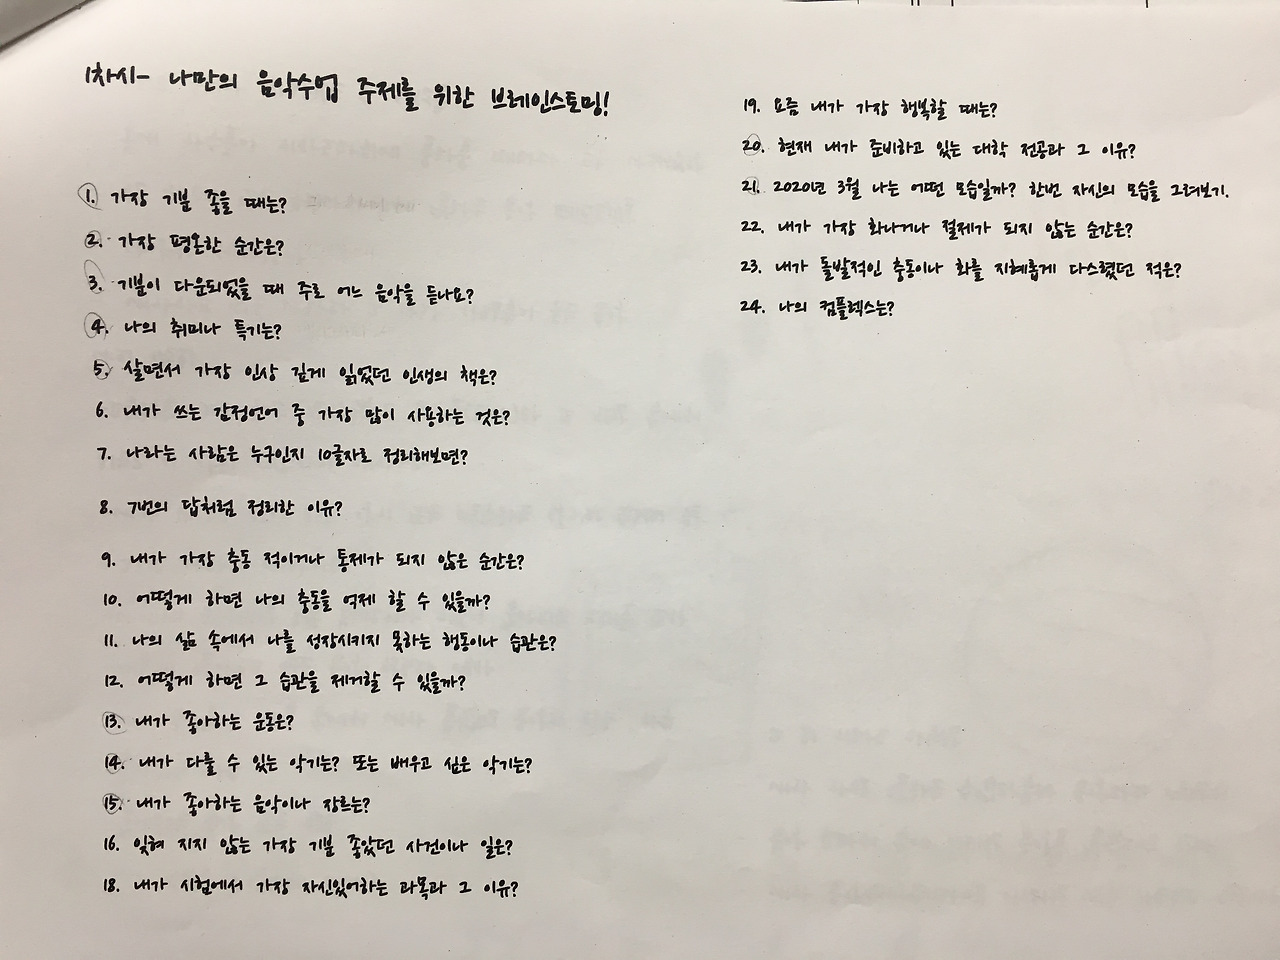 1차시- 나만의 음악수업 주제를 위한 브레인스토밍!
1. 가장 기분 좋을 때는?
2. 가장 평온한 순간은?
3. 기분이 다운되었을 때 주로 어느 음악을 듣나요?
4. 나의 취미나 특기는?
5. 살면서 가장 인상 깊게 읽었던 인생의 책은?
6. 내가 쓰는 감정언어 중 가장 많이 사용하는 것은?
7. 나라는 사람은 누구인지 10글자로 정리해보면?
8. 7번의 답처럼 정리한 이유?
9. 내가 가장 충동 적이거나 통제가 되지 않은 순간은?
10. 어떻게 하면 나의 충동을 억제 할 수 있을까?
11. 나의 삶 속에서 나를 성장시키지 못하는 행동이나 습관은?
12. 어떻게 하면 그 습관을 제거할 수 있을까?
13. 내가 좋아하는 운동은?
14. 내가 다룰 수 있는 악기는? 또는 배우고 싶은 악기는?
15. 내가 좋아하는 음악이나 장르는?
16. 잊혀 지지 않는 가장 기분 좋았던 사건이나 일은?
18. 내가 시험에서 가장 자신있어하는 과목과 그 이유?
19. 요즘 내가 가장 행복할 때는?
20. 현재 내가 준비하고 있는 대학 전공과 그 이유?
21. 2020년 3월 나는 어떤 모습일까? 한번 자신의 모습을 그려보기.
22. 내가 가장 화나거나 절제가 되지 않는 순간은?
23. 내가 돌발적인 충동이나 화를 지혜롭게 다스렸던 적은?
24. 나의 컴플렉스는?